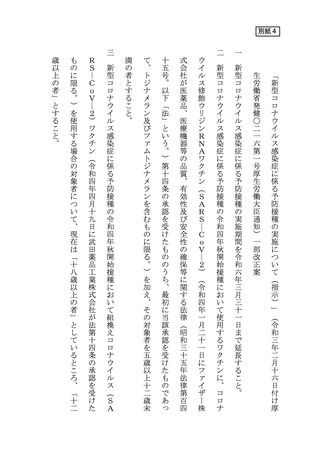 別紙4
「新型コロナウイルス感染症に係る予防接種の実施について（指示）」（令和三年二月十六日付け厚
生労働省発健〇二一六第一号厚生労働大臣通知）一部改正案
一　新型コロナウイルス感染症に係る予防接種の実施期間を令和六年三月三十一日まで延長すること。
二　新型コロナウイルス感染症に係る予防接種の令和四年秋開始接種において使用するワクチンに、コロナ
ウイルス修飾ウリジンRNAワクチン（SARS―CoV―2）（令和四年一月二十一日にファイザー株
式会社が医薬品、医療機器等の品質、有効性及び安全性の確保等に関する法律（昭和三十五年法律第百四
十五号。以下「法」という。）第十四条の承認を受けたもののうち、最初に当該承認を受けたものであっ
て、トジナメラン及びファムトジナメランを含むものに限る。）を加え、その対象者を五歳以上十二歳未
満の者とすること。
三　新型コロナウイルス感染症に係る予防接種の令和四年秋開始接種において組換えコロナウイルス（SA
RS―CoV―2）ワクチン（令和四年四月十九日に武田薬品工業株式会社が法第十四条の承認を受けた
ものに限る。）を使用する場合の対象者について、現在は「十八歳以上の者」としているところ、「十二
歳以上の者」とすること。